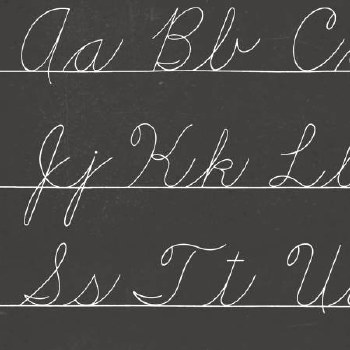 Aa Bb C
Jj Kk Ll
Ss Tt U